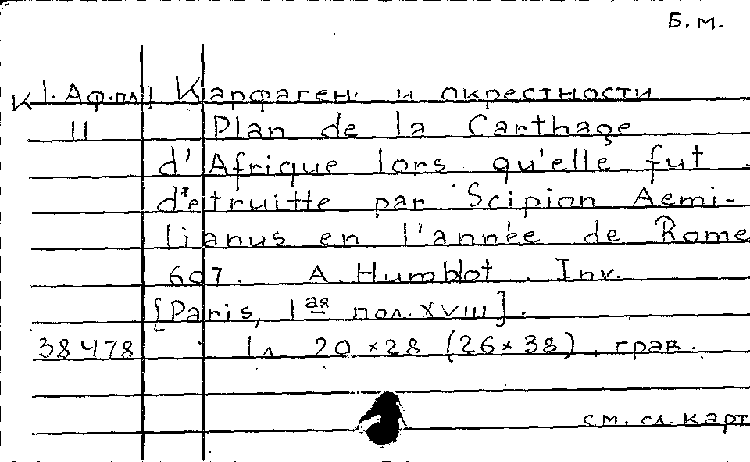 Б.м.
К 1. Аф.пл1 Карфаген и окрестности
11 Plan de la Carthage
d'Afrique lors qu'elle fut
d'etruitte par Scipion Aemi-
lianus en l'année de Rome
607. A. Humblot. Inv.
[Paris, 1ая пол. XVIII].
38478 1 л 20 × 28 (26 × 38), грав.
см. сл. карт